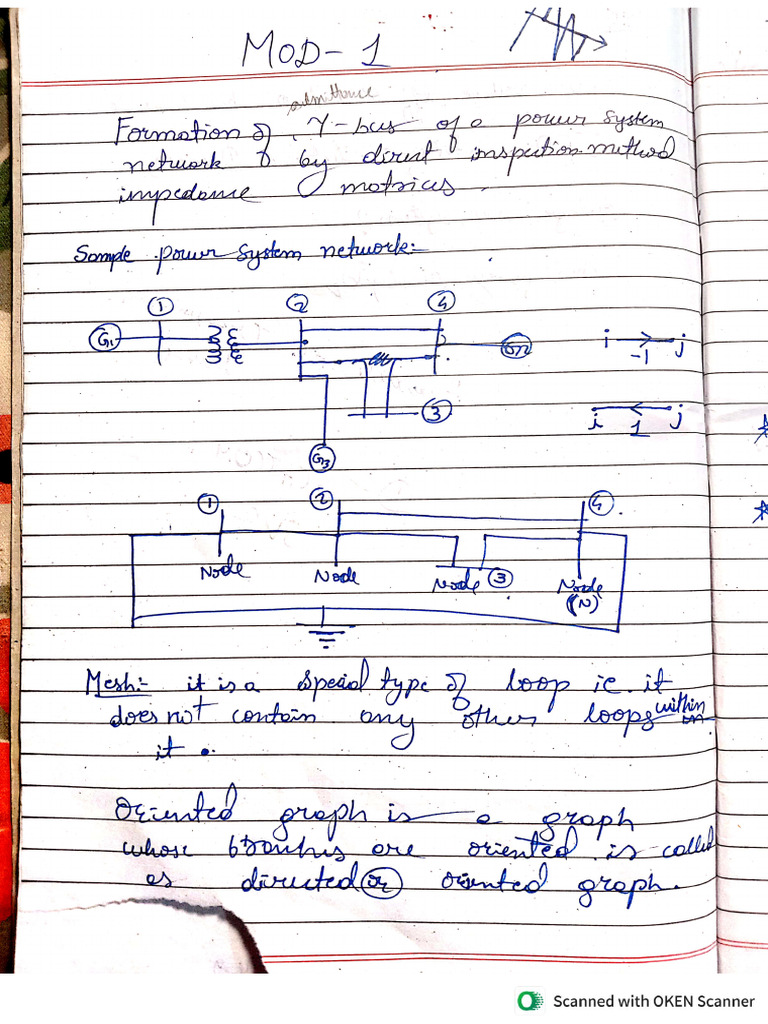 MOD-1
admittance
Formation of Y-bus of a power system
network by direct inspection method
impedance matrices.
Sample power system network:-
① ② ④
G₁
i -1 j
③
i 1 j
G₃
① ② ④
Node Node Node ③ Node
(N)
Mesh:- it is a special type of loop ie. it
does not contain any other loops within
it.
Oriented graph is a graph
whose branhis are oriented is called
as directed or oriented graph.
Scanned with OKEN Scanner